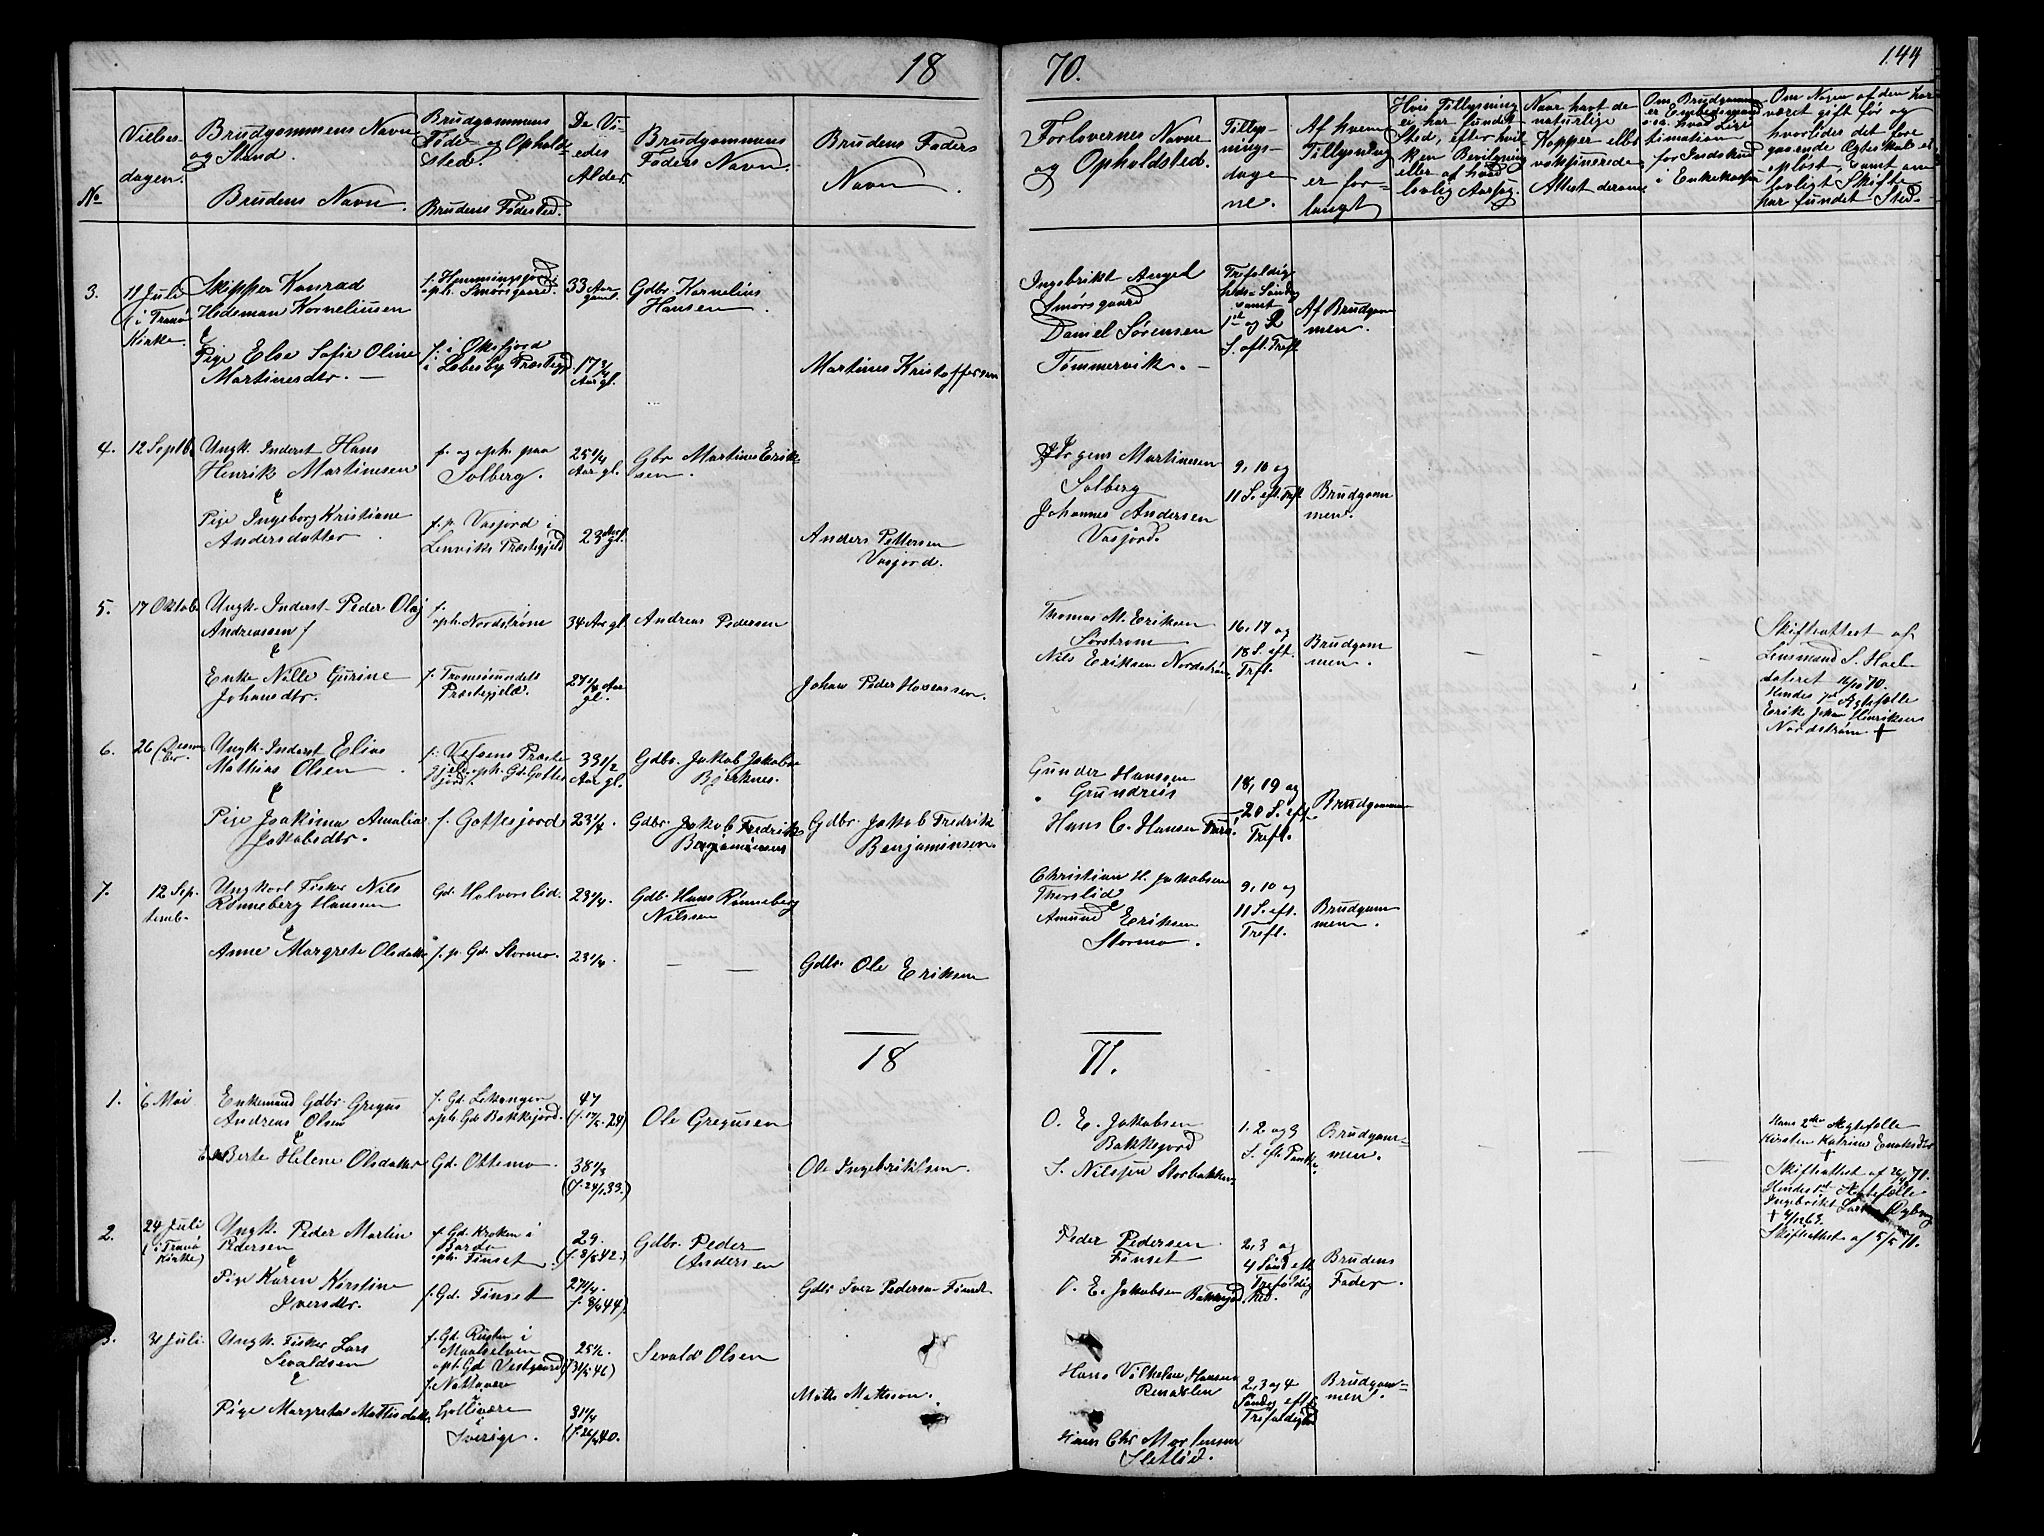 18 70. 144
No
Vielses-
dagen.
Brudgommens Navn
og Stand.
Brudens Navn.
Brudgommens
Føde- og Opholds-
Sted.
Brudens Fødested.
De Vi-
edes
Alder.
Brudgommens
Faders Navn.
Brudens Faders
Navn.
Forlovernes Navne
og Opholdsted.
Tillys-
nings-
dage
ne.
Af hvem
Tillysning
er for-
langt
Hvis Tillysning
ei har fundet
Sted, efter hvil
ken Bevilgning
eller af hvad
lovlig Aarsag.
Naar havt de
naturlige
Kopper eller
vaksinerede
Attest derom
Om Brudgommen
er Embedsmand
o.s.v. hvad Legi
timation
for Indskud
i Enkekassen
Om Nogen af dem har
været gift før og
hvorledes det fore
gaaende Egteskab er
opløst, samt om
lovligt Skifte
har fundet Sted.
3.
11 Juli
(i Tranø
Kirke.
Skipper Konrad
Hedeman Korneliusen
&
Pige Else Sofie Oline
Martinesdtr. —
f. Hemmingsjord
oph. Smørsgaard.
f. i Oksfjord
i Lebesby Præstegjd
33 Aar
gaml.
17 3/4
Aar gl.
Gdbr. Kornelius
Hansen.
Martines Kristoffersen
Ingebrikt Angel
Smørsgaard
Daniel Sørensen
Tømmervik. -
Trefoldig
heds-Søndag
samt
1ste og 2
S. eft. Trefl
Af Brudgom
men.
4.
12 Septb.
Ungk. Inderst Hans
Henrik Martinesen
&
Pige Ingeborg Kristiane
Andersdatter
f. og oph. paa
Solberg.
f. p. Vasjord i
Lenviks Præstegjeld
25 1/4
Aar gl.
23 Aar
gl.
Gbr Martines Erik-
sen.
Anders Pettersen
Vasjord.
Jørgens Martinesen
Solberg
Johannes Andersen
Vasjord.
9, 10 og
11 S. eft. Trefl
Brudgom
men.
5.
17 Oktob.
Ungk. Inderst Peder Olaj
Andreassen
&
Enke Nille Gurine
Johansdtr.
f.
oph. Nordstrøm
f. Tromsøsundets
Præstegjeld.
34 Aar gl.
27 1/4 Aar
gl.
Andreas Pedersen
Johan Peder
Thomas M. Eriksen
Sørstrøm
Nils Eriksen Nordstrøm
16, 17 og
18 S. eft.
Trefl.
Brudgom
men.
Skifteattest af
Lensmand S. Hoel
dateret 16/10 70.
Hendes 1ste Ægtefælle
Erik Johan Henriksen
Nordstrøm +
6.
26
Ungk. Inderst Elias
Mathias Olsen
&
Pige Joakima Amalia
Jakobsdtr.
f. Vefsens Præste
gjeld oph. Gd. Gottes
fjord.
f. Gottesjord
33 1/2
Aar gl.
23 1/4.
Gdbr. Jakob Jakobsen
Bjerknes.
Gdbr. Jakob Fredrik
Benjaminsen
Gdbr. Jakob Fredrik
Benjaminsen.
Gunder Hanssen
Grundreis
Hans C. Hansen
18, 19 og
20 S. eft.
Trefl.
Brudgommen
7.
12 Sep-
temb.
Ungkarl Fisker Nils
Rønneberg Hansen
&
Anne Margrete Olsdatter
Gd. Halvorslid.
f. p. Gd. Stormo.
23 1/4.
23 1/4.
Gdb. Hans Rønneberg
Nilssen
— —
Gdbr. Ole Eriksen
Christian H. Jakobsen
Thorslid
&
Amund Eriksen
Stormo.
9, 10 og
11 S. eft.
Trefl.
Brudgom
men.
18 71.
1.
6 Mai
Enkemand Gdbr. Gregus
Andreas Olsen
&
Berte Helene Olsdatter
f. Gd. Lekangen
oph. Gd. Bakkejord.
Gd. Ottemo
47
(f. 17/5 24)
38 1/3
(f. 24/1 33.)
Ole Gregusen
Ole Ingebriktsen.
O. E. Jakobsen
Bakkejord
S. Nilssen Storbakken
1, 2 og 3
S. eft Paaske
Brudgom-
men.
Hans 2den Ægtefælle
Kirsten Katrine Enoksdtr
+
Skifteattest af 26/4 70.
Hendes 1ste Ægtefælle
Ingebrikt Larsen
+ 4/12 63.
Skifteattest af 5/5 70.
2.
24 Juli
(i Tranø
Kirke)
Ungk. Peder Martin
Pedersen
&
Pige Karen Kirstine
Iversdtr.
f. Gd. Kroken i
Bardo
oph. Finset
f. Gd. Finset
29.
(f. 8/5 42.)
27 1/4.
f. 8/3 44).
Gdbr. Peder
Andersen
Gdbr Iver Pedersen Finset
Peder Pedersen
Finset
O. E. Jakobsen Bakkejord
2, 3 og
4 Sønd eft
Trefoldig
hed.
Brudens
Fader.
3.
31 Juli.
Ungk. Fisker Lars
Sevaldsen
&
Pige Margrete Mattisdatter
f. Gd. Rugten i
Maalselven
oph. Gd Vestgaard
f.
Gellivare
i
Sverige.
25 1/6.
31 1/4
(f. 26/4 40.
Sevald Olsen
Matts Mattsson.
Hans Vilhelm Hansen
Hans Chr Mortensen
Sletlid.
2, 3 og 4
Søndag eft
Trefoldighed
Brudgom-
men.